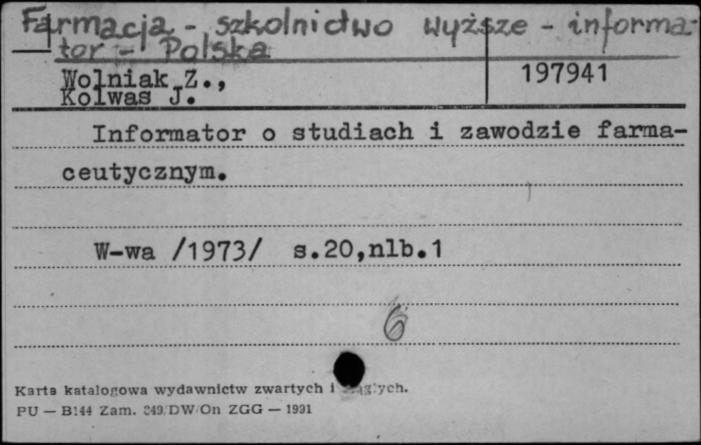 Farmacja - szkolnictwo wyższe - informa-
tor - Polska
Wolniak Z.,
Kolwas J.
197941
Informator o studiach i zawodzie farma-
ceutycznym.
W-wa /1973/ s.20,nlb.1
6
Karta katalogowa wydawnictw zwartych i ciągłych.
PU — B144 Zam. 349/DW/On ZGG — 1991